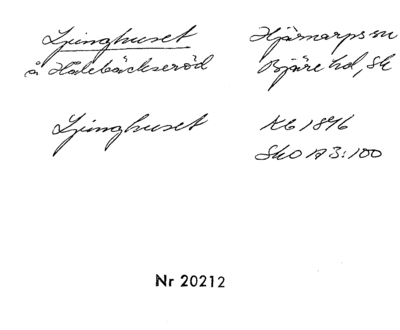 Ljunghuset
å Hålebäckseröd
Hjärnarps sn
Bjäre hd, Sk
Ljunghuset
KB 1896
SkO A3:100
Nr 20212